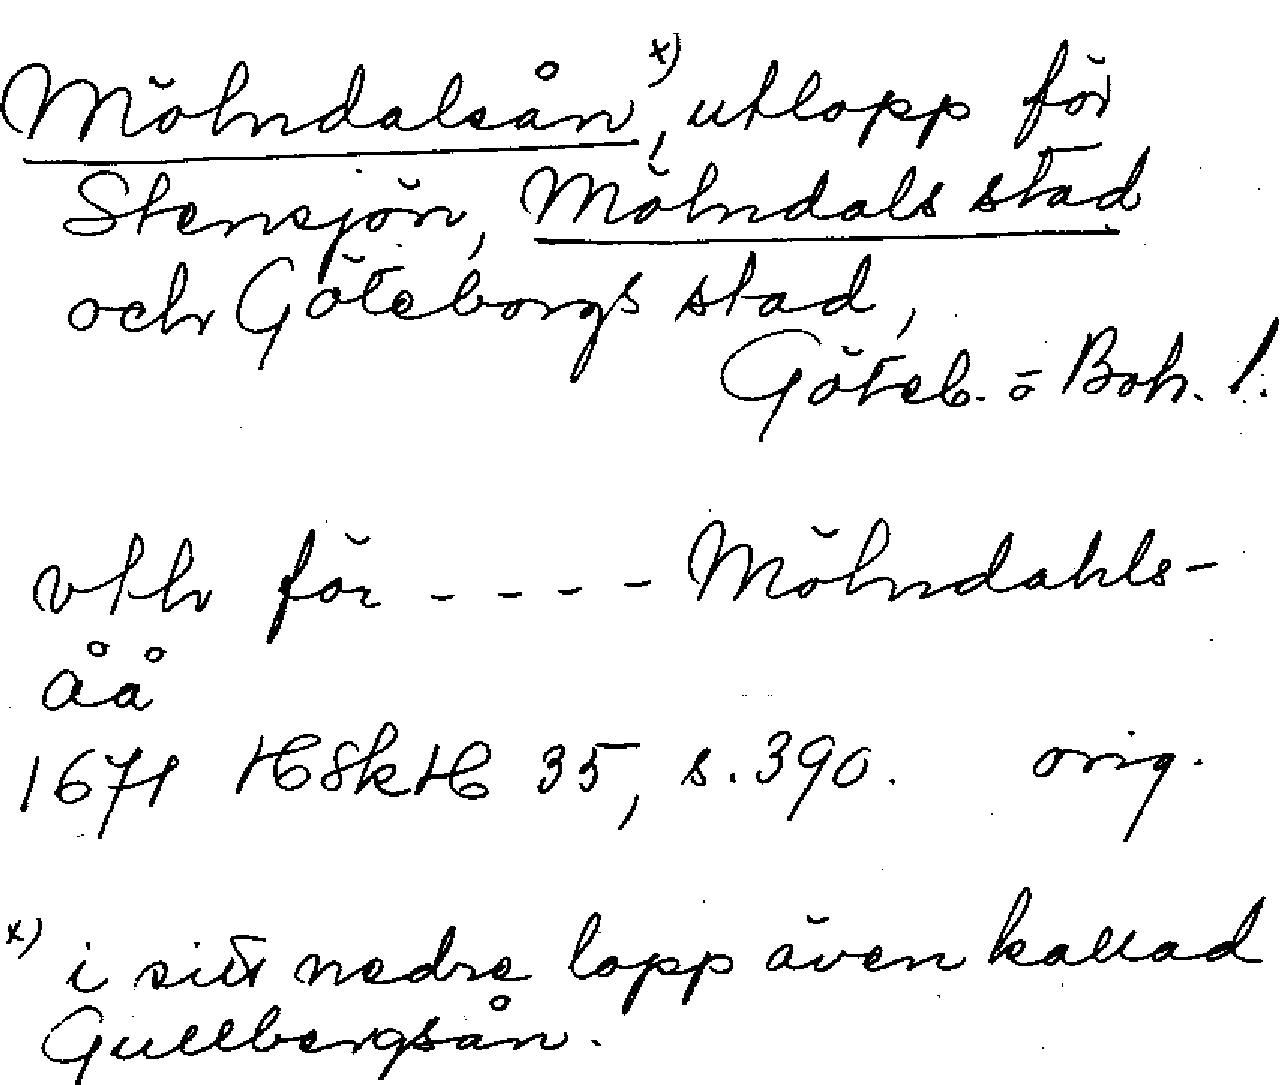 Mölndalsån x), utlopp för
Stensjön, Mölndals stad
och Göteborgs stad,
Göteb. o Boh. l.
vthr för - - - - Mölndahls-
åå
1671 HSkH 35, s. 390. orig.
x) i sitt nedre lopp även kallad
Gullbergsån.